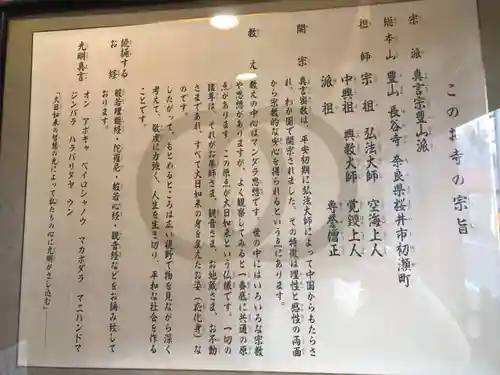 このお寺の宗旨
宗派 真言宗豊山派
総本山 豊山 長谷寺 奈良県桜井市初瀬町
祖師 宗祖 弘法大師 空海上人
中興祖 興教大師 覚鑁上人
派祖 専誉僧正
開宗 真言密教は、平安初期に弘法大師によって中国からもたらさ
れ、わが国で開宗されました。その特徴は理性と感性の両面
から宗教的な安心を得られるという点にあります。
教え 教えの中心はマンダラ思想です。世の中にはいろいろな宗教
や思想がありますが、よく観察してみると一番底に共通の原
点があります。この原点が大日如来という仏様です。一切の
諸尊は、それがお薬師さま、観音さま、お地蔵さま、お不動
さまであれ、すべて大日如来の身を変えたお姿(応化身)な
のです。
したがって、もとめるところは広い視野で物を見ながら深く
考えて、敬虔に力強く、人生を生き切り、平和な社会を作る
ことです。
読誦する お経 般若理趣経・陀羅尼・般若心経・観音経などをお誦み致して
おります。
光明真言 オン アボキャ ベイロシャノウ マカボダラ マニハンドマ
ジンバラ ハラバリタヤ ウン
「大日如来の智慧の光によって私たちの心に光明がさし込む」